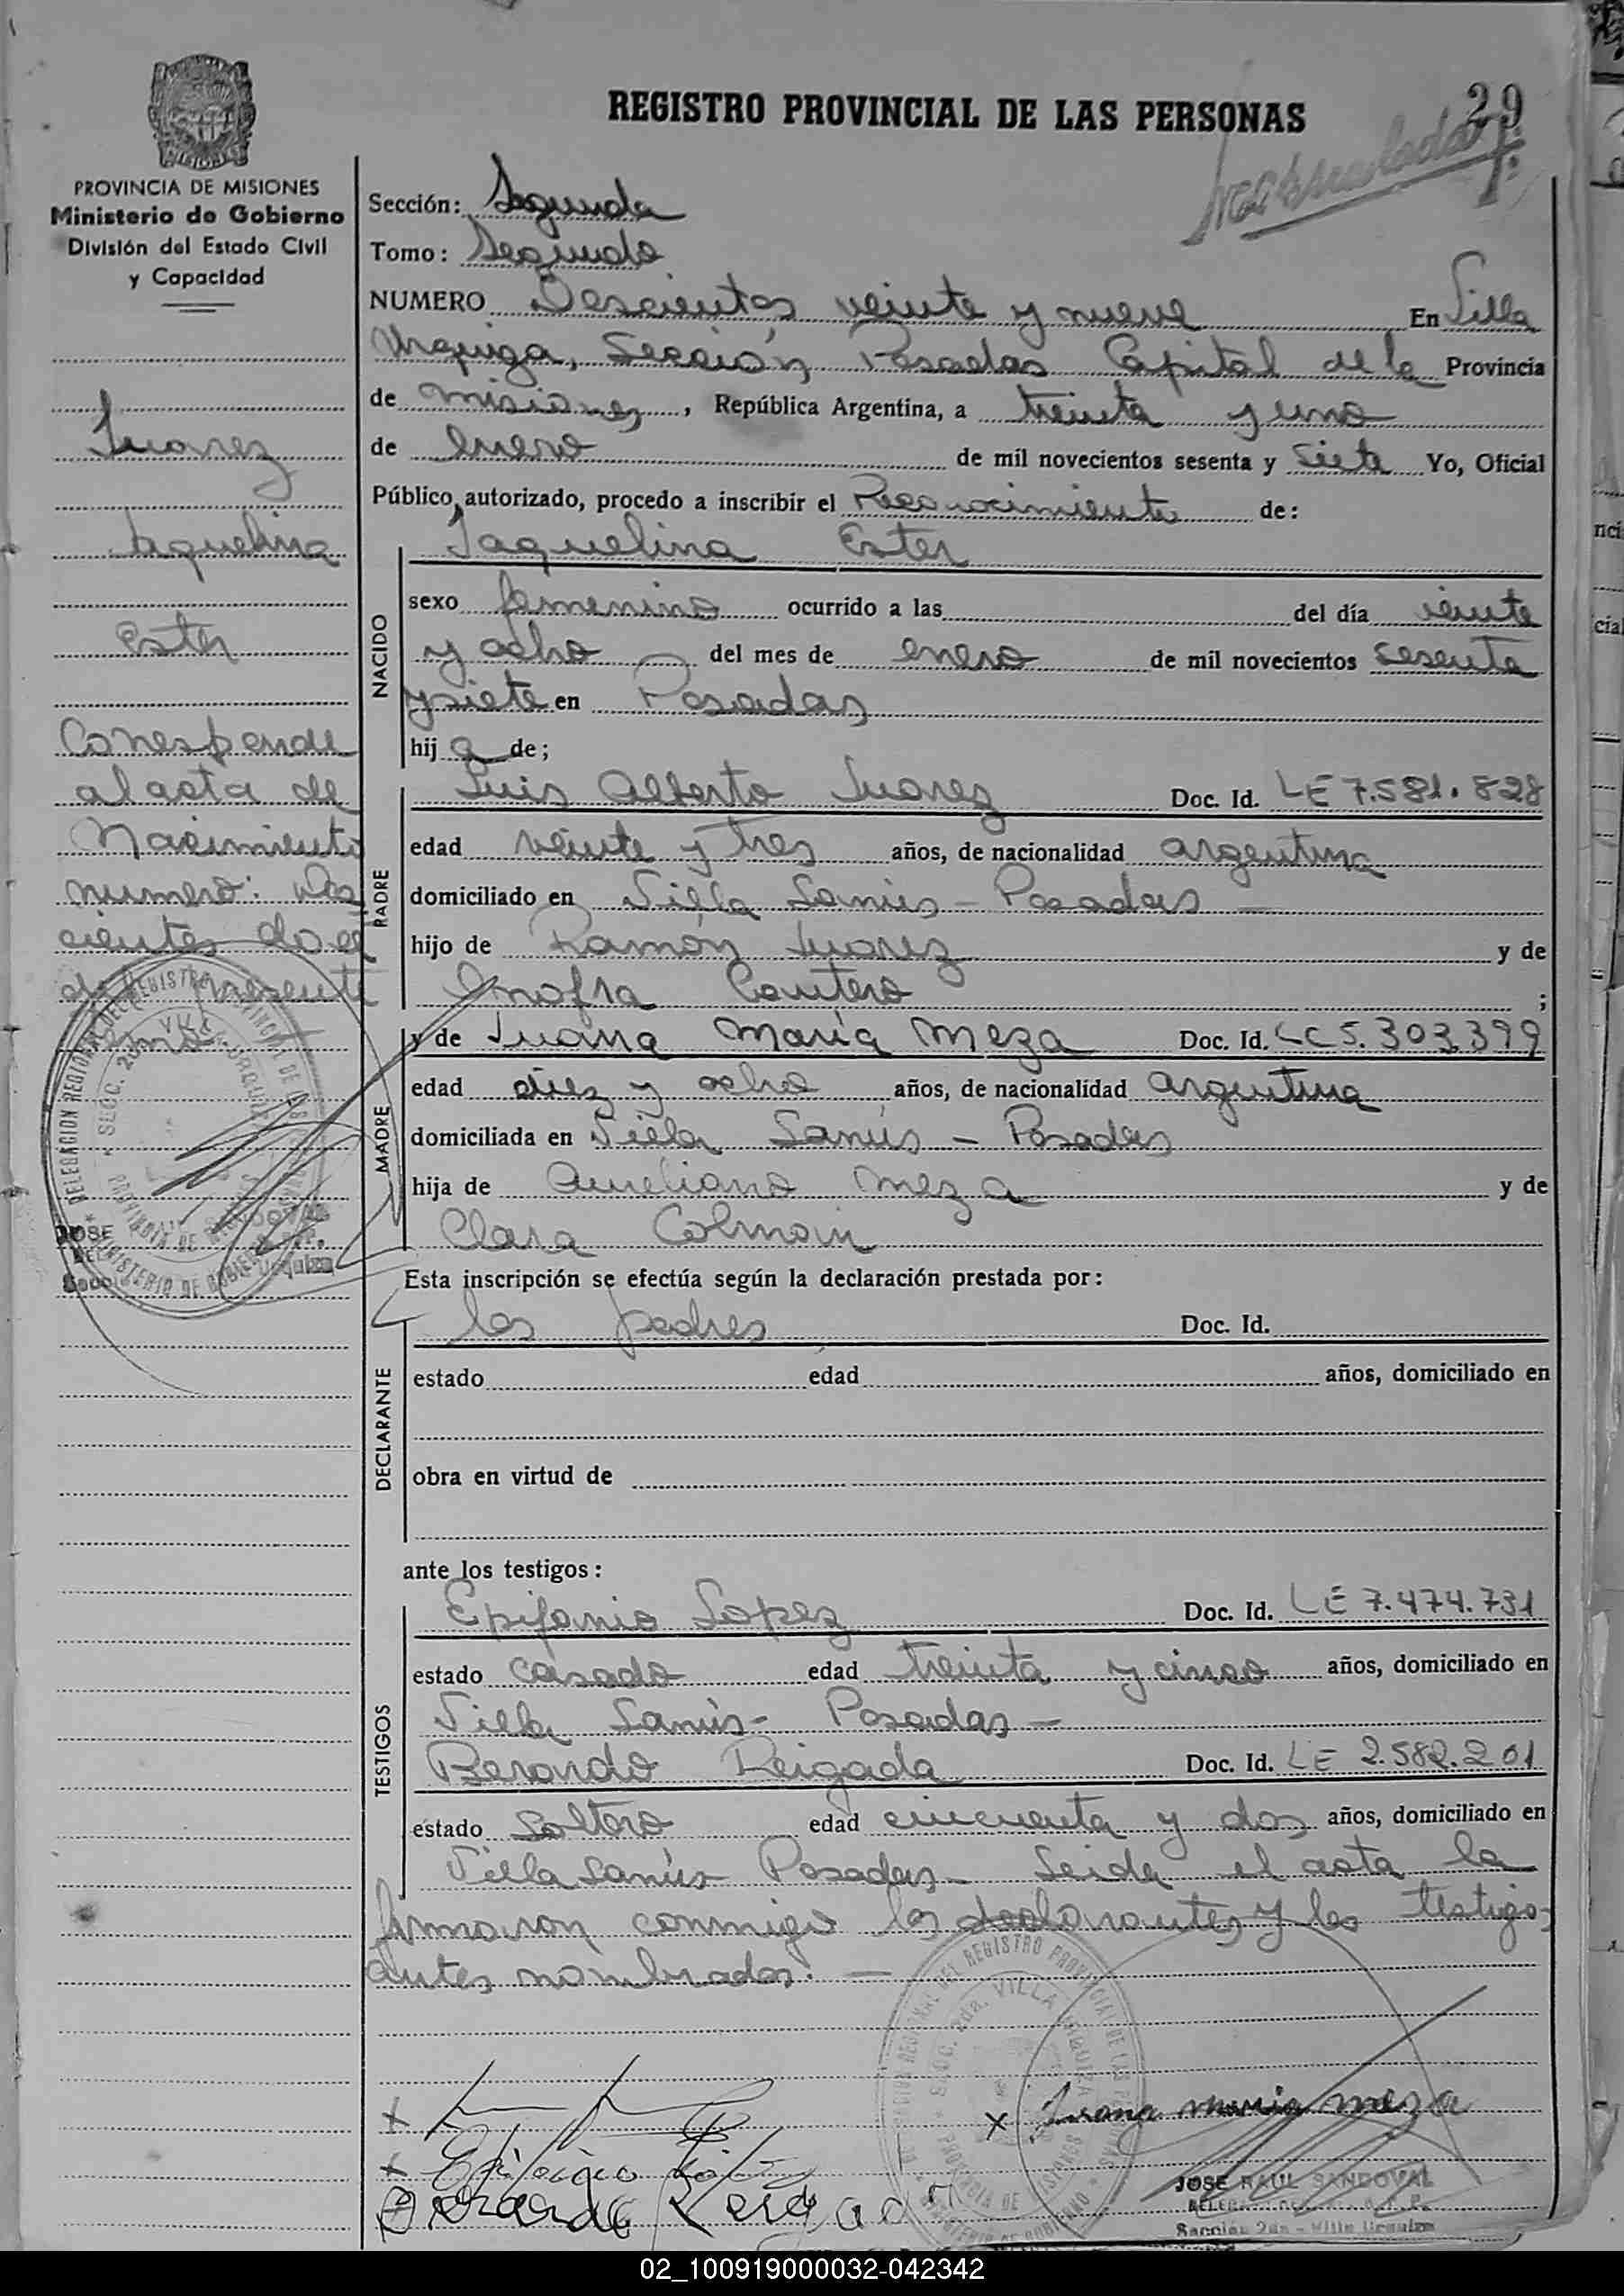 REGISTRO PROVINCIAL DE LAS PERSONAS
29
PROVINCIA DE MISIONES
Ministerio de Gobierno
División del Estado Civil
y Capacidad
Juarez
Jaquelina
Ester
Corresponde
al acta de
Nacimiento
numero: dos
cientos doce
del presente
tomo
Sección: Segunda
Tomo: Segundo
NUMERO Doscientos veinte y nueve En Villa
Urquiza, Sección Posadas Capital de la Provincia
de Misiones, República Argentina, a treinta y uno
de enero de mil novecientos sesenta y siete Yo, Oficial
Público autorizado, procedo a inscribir el Reconocimiento de:
NACIDO
Jaquelina Ester
sexo femenino ocurrido a las del día veinte
y ocho del mes de enero de mil novecientos sesenta
y siete en Posadas
hij a de;
PADRE
Luis Alberto Juarez Doc. Id. LE 7.581.828
edad veinte y tres años, de nacionalidad argentina
domiciliado en Villa Lanús - Posadas -
hijo de Ramón Juarez y de
Onofra Cantero ;
MADRE
y de Juana María Meza Doc. Id. LC 5.303.399
edad diez y ocho años, de nacionalidad argentina
domiciliada en Villa Lanús - Posadas
hija de Aureliano Meza y de
Clara Colman
Esta inscripción se efectúa según la declaración prestada por:
DECLARANTE
los padres Doc. Id.
estado edad años, domiciliado en
obra en virtud de
ante los testigos:
TESTIGOS
Epifanio Lopez Doc. Id. LE 7.474.731
estado casado edad treinta y cinco años, domiciliado en
Villa Lanús - Posadas -
Berardo Reigada Doc. Id. LE 2.582.201
estado soltero edad cincuenta y dos años, domiciliado en
Villa Lanús Posadas - Leida el acta la
firmaron conmigo los declarantes y los testigos
antes nombrados. -
x
x Juana maria meza
x
JOSE RAUL SANDOVAL
Sección 2da - Villa Urquiza
02_100919000032-042342